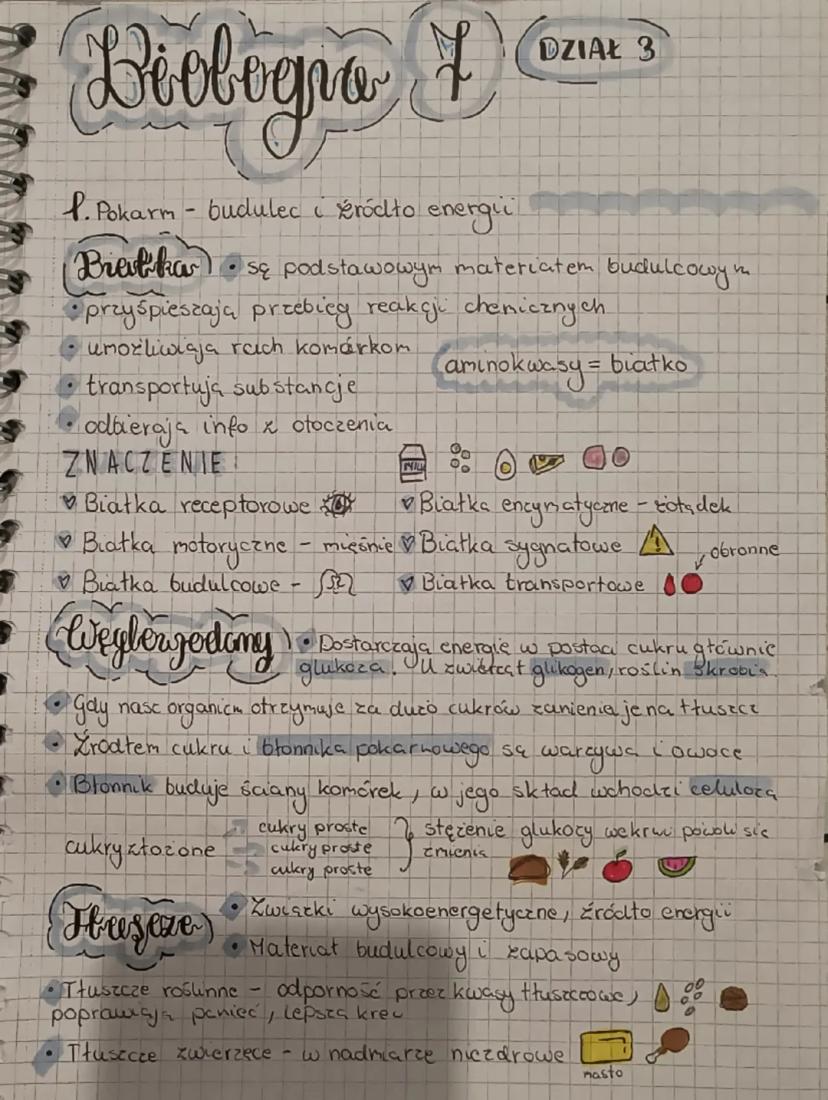 Biologia 7 DZIAŁ 3
1. Pokarm - budulec i źródło energii
Białka • są podstawowym materiałem budulcowym
• przyśpieszają przebieg reakcji chemicznych
• umożliwiają ruch komórkom aminokwasy = białko
• transportują substancje
• odbierają info z otoczenia
ZNACZENIE: MILK
Białka receptorowe Białka enzymatyczne - żołądek
Białka motoryczne - mięśnie Białka sygnałowe obronne
Białka budulcowe - Białka transportowe
Węglowodany • Dostarczają energię w postaci cukru głównie
glukoza. U zwierząt glikogen, roślin skrobia.
• Gdy nasz organizm otrzymuje za dużo cukrów zamienia je na tłuszcz
• Źródłem cukru i błonnika pokarmowego są warzywa i owoce
• Błonnik buduje ściany komórek, w jego skład wchodzi celuloza
cukry proste stężenie glukozy we krwi powoli się
cukry złożone cukry proste zmienia
cukry proste
Tłuszcze • Związki wysokoenergetyczne, źródło energii
• Materiał budulcowy i zapasowy
• Tłuszcze roślinne - odporność przez kwasy tłuszczowe,
poprawiają pamięć, lepsza krew
• Tłuszcze zwierzęce - w nadmiarze niezdrowe
masło